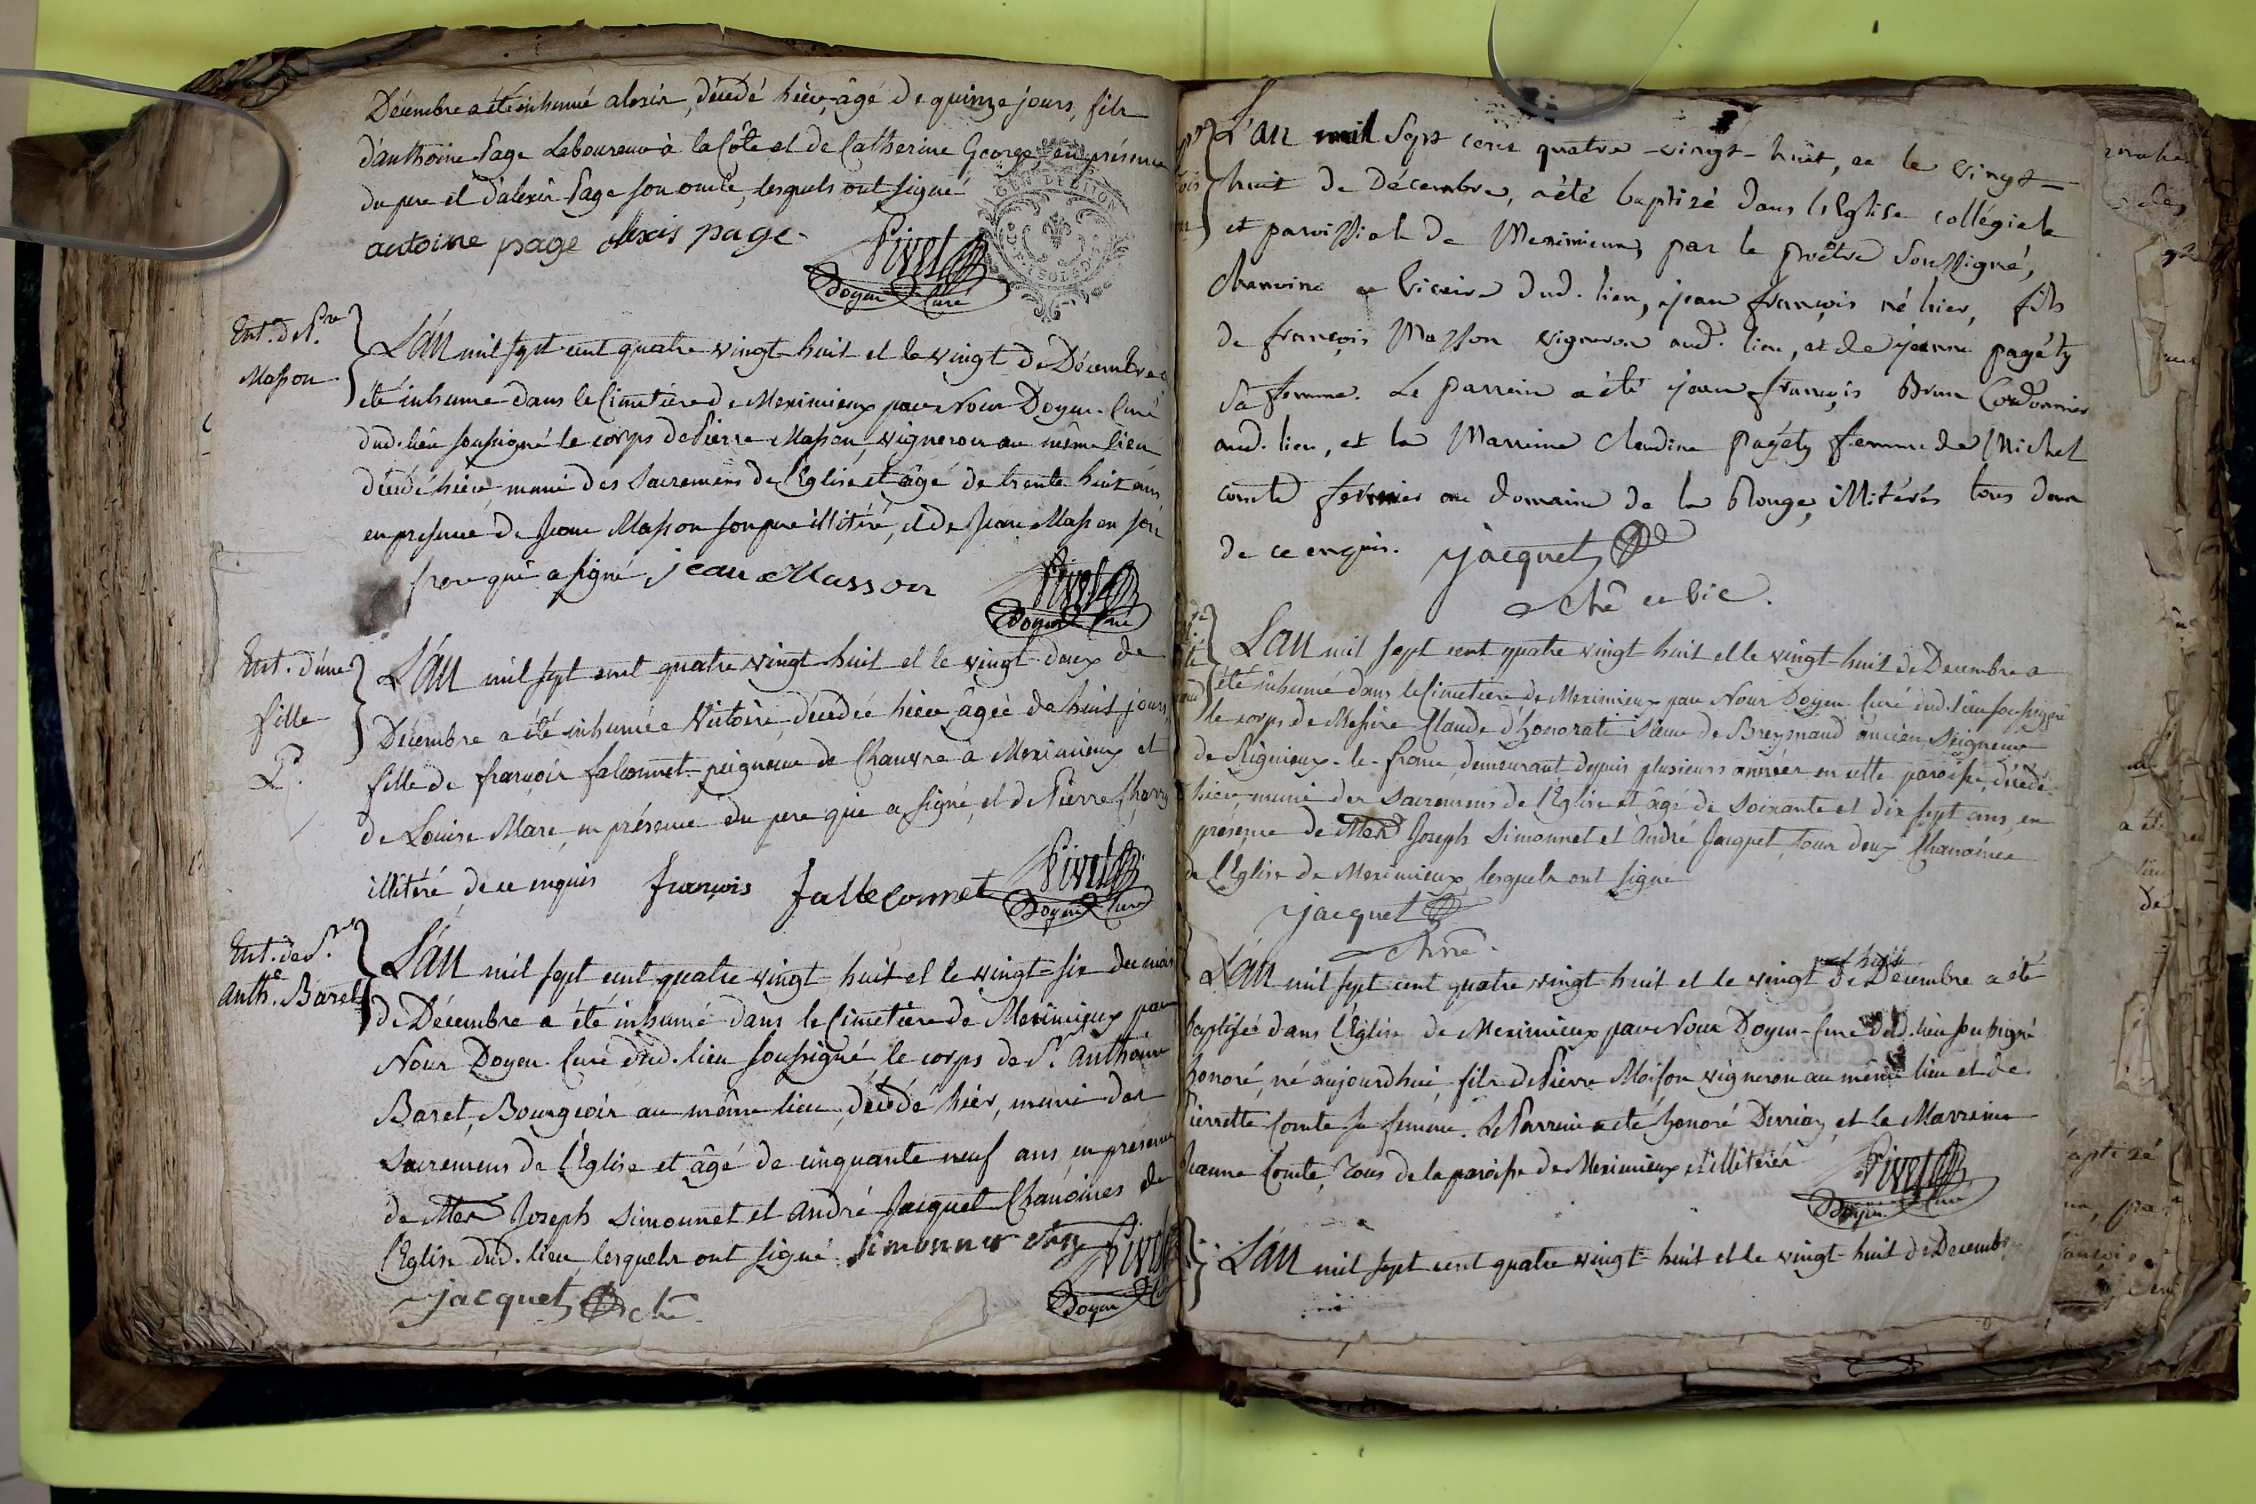 Décembre a été inhumé alexis, décédé hièr, âgé de quinze jours, fils
d'anthoine Page Laboureur à la Côte et de Catherine George, en présence
du pere et d'alexis Page son oncle, lesquels ont signé
antoine page alexis page
Pivet
Doyen Curé
GEN. DE LYON
Ent. de Pre
Masson
L'an mil sept cent quatre vingt huit et le vingt de Décembre a
été inhumé dans le Cimetière de Meximieux par Nous Doyen Curé
dud. lieu soussigné le corps de Pierre Masson, vigneron au même lieu
décédé hièr, muni des Sacremens de l'Eglise et âgé de trente huit ans
en présence de Jean Masson son pere illitéré, et de Jean Masson son
frere qui a signé, jean Masson
Pivet
Doyen Curé
Ent. d'une
fille
L'an mil sept cent quatre vingt huit et le vingt deux de
Décembre a été inhumée Victoire, décédée hièr, âgée de huit jours,
fille de françois falconnet peigneur de Chanvre à Meximieux et
de Louise Mare, en présence du pere qui a signé, et de Pierre
illitéré de ce enquis françois falleconnet
Pivet
Doyen Curé
Ent. de Sr.
Anthe. Baret
L'an mil sept cent quatre vingt huit et le vingt-six du mois
de Décembre a été inhumé dans le Cimetière de Meximieux par
Nous Doyen Curé dud. lieu soussigné, le corps de Sr. Anthoine
Baret, Bourgeois au même lieu, décédé hièr, muni des
Sacremens de l'Eglise et âgé de cinquante neuf ans, en présence
de Mes Joseph Simonnet et André Jacquet Chanoines de
l'Eglise dud. lieu lesquels ont signé. Simonnet
Pivet
Doyen
jacquet ch
L'an mil sept cent quatre-vingt-huit, et le vingt-
huit de Décembre, a été baptizé dans l'Eglise collégiale
et paroissiale de Meximieux, par le prêtre soussigné,
chanoine et vicaire dud. lieu, jean françois né hier, fils
de françois Masson vigneron aud. lieu, et de jeanne pagéty
sa femme. Le parrein a été jean françois Brun Cordonnier
aud. lieu, et la Marreine claudine pagéty femme de Michel
comte fermier au domaine de la Rouge, illitérés tous deux
de ce enquis. jacquet
che et vic.
L'an mil sept cent quatre vingt huit et le vingt-huit de Décembre a
été inhumé dans le Cimetiere de Meximieux par Nous Doyen Curé dud. lieu soussigné
le corps de Messire Claude d'honorati Sieur de Breymand ancien Seigneur
de Rignieux-le-franc, demeurant depuis plusieurs années en cette paroisse, décédé
hièr, muni des Sacremens de l'Eglise et âgé de soixante et dix sept ans, en
présence de Mes Joseph Simonnet et André Jacquet, tous deux Chanoines
de l'Eglise de Meximieux, lesquels ont signé
jacquet
chne.
huit
L'an mil sept cent quatre vingt huit et le vingt de Décembre a été
baptisé dans l'Eglise de Meximieux par Nous Doyen-Curé dud. lieu soussigné
honoré, né aujourdhui fils de Pierre Moison vigneron au même lieu et de
Pierrette Comte sa femme. Le Parrein a été honoré Derriaz, et la Marreine
Jeanne Comte, tous de la paroisse de Meximieux et illitérés
Pivet
Doyen Curé
L'an mil sept cent quatre vingt-huit et le vingt-huit de Décembre